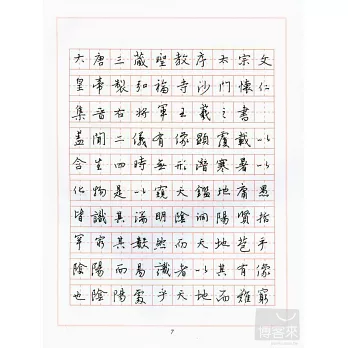 大唐三藏聖教序太宗文
皇帝製弘福寺沙門懷仁
集晉右將軍王羲之書
蓋聞二儀有像顯覆載以
含生四時無形潛寒暑以
化物是以窺天鑑地庸愚
皆識其端明陰洞陽賢哲
罕窮其數然而天地苞乎
陰陽而易識者以其有像
也陰陽處乎天地而難窮
7
博客來